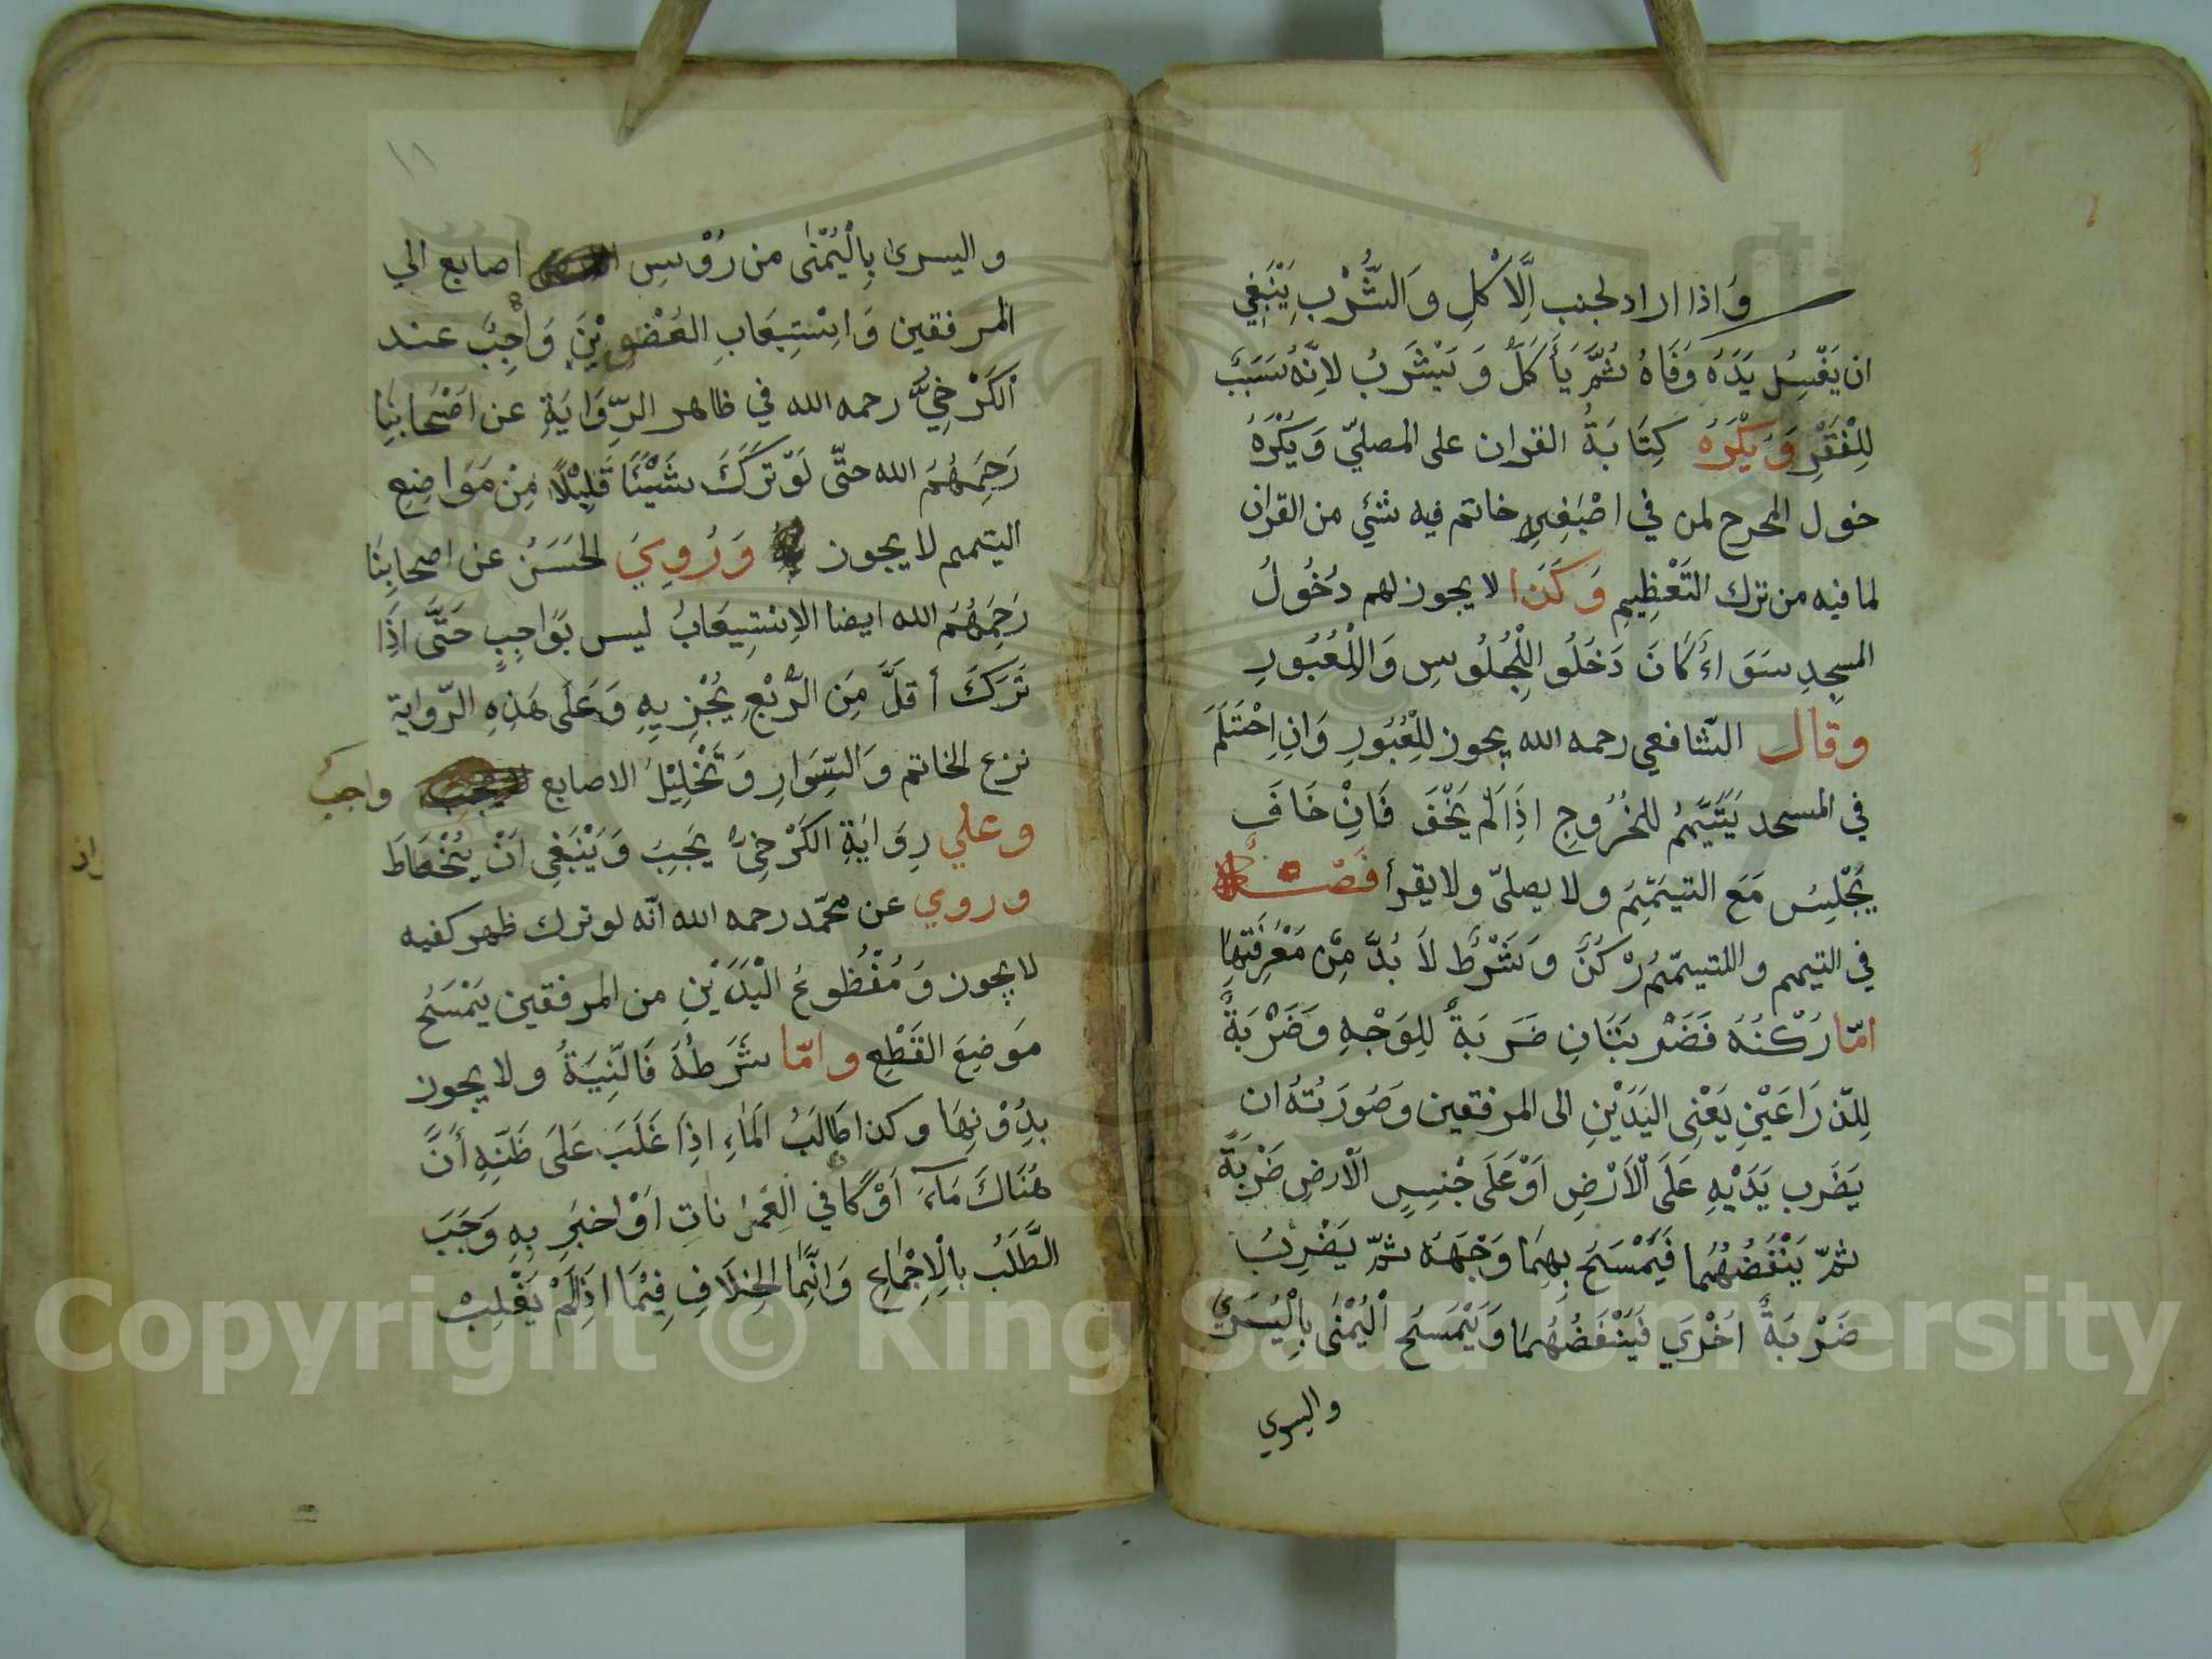 واذا اراد لجنب الَّاكْلِ وَالشُّرْبِ يَنْبَغِي
ان يَغْسِلُ يَدَهُ وَفَاهُ ثُمَّ يَأَكَلُ وَيَشْرَبُ لانَّهُ سَبَبَ
لِلْفَقْرِ وَيَكْرَهُ كِتَابَةُ القران على المصليّ وَيَكْرَهُ
خول المخرج لمن في اصْبَعِهِ خاتم فيه شئي من القران
لما فيه من ترك التَعْظِيمِ وَكَذَا لا يجوز لهم دُخُولُ
المسجِدِ سَوَاءُ كَانَ دَخَلُو اللْجُلُوسِ وَالْعُبُورِ
وقال الشافعي رحمه الله يجوز لِلْعُبُورِ وَانِ اِحْتَلَمَ
في المسجد يَتَيَّمُم للخُرُوجِ اذَا لَمْ يَخْفَ فَانِْ خَافَ
يَجْلِسُ مَعَ التيمّمِ ولا يصليّ ولا يقرأ فَصْلٌ
في التيمم والمتيمّمُ رْكنُ وَشَرْطُ لَا بُدَّ مِنْ مَعْرِفَتِهَا
امّا رُكْنُهُ فَضَرْبَتَانِ ضَرَبَةٌ لِلوَجْهِ وَضَرْبَةٌ
لِلذّرَاعَيْنِ يَعْنِى اليَدَيْنِ الى المرفقين وَصُورَتُهُ ان
يَضَرِب يَدَيْهِ عَلَى الْاَرْضِ اَوْ عَلَى جْنِسِ الْارضِ ضَرْبَةً
ثمّ يَنْفُضُهُمَا فَيَمْسَحُ بِهِمَا وَجْهَهُ ثمّ يَضْرِبُ
ضَرْبَةً اُخْرَي فَيَنْفَضُهُمَا وَيَمْسَحُ الْيُمْنٰى بِالْيُسْرَي
واليسري
١٨
واليسرىٰ بِالْيُمْنٰى من رُؤسِ اصابع الي
المرفقين وَاِسْتِيعَابِ العَضْوَيْنِ وَاْجِبٌ عند
الكَرْخِيُّ رحمه الله في ظاهر الرِّوَايَةِ عن اَصْحَابِنَا
رَحِمَهُمُ الله حتّى لَوْ تَرَكَ شَيْئًا قَلِيْلًا مِنْ مَوَاضِعِ
التيمم لا يجوز وَرُوِيَ الحَسَنُ عن اصحابِنَا
رَحِمَهُمُ الله ايضا الاِسْتِيعَابُ ليس بَوَاجِبٍ حَتَّى اذَا
تَرَكَ أقلَّ مِنَ الرُّبْعِ يُجْزِيهِ وَعَلَى هَذِهِ الرّواية
نزع الخاتم وَالسِّوَارِ وَتَخْلِيْلُ الاصابع واجب
وعلي رِوَايَةِ الكَرْخِيُّ يَجِبَ وَيَنْبَغِى اَنْ يُحْتَاطَ
وروي عن محمّد رحمه الله انّه لو ترك ظهر كفيه
لا يجوز وَمُقْطُوعُ الْيَدَيْنِ من المرفقين يَمْسَحُ
مَوضِعَ القَطْعِ وامّا شَرَطُهُ فَالنِّيَةُ ولا يجوز
بِدُوْنِهَا وكذا طَالَبُ الْمَاءِ اذَا غَلَبَ عَلَى ظَنِّهِ أَنَّ
هُنَاكَ مَاءَ اَوْ كَا في العِمَرَانَاتِ اَوْ اخبَرِ بِهِ وَجَبَ
الطَّلَبُ بِالْاِجْمَاعِ وَانَّمَا الخِلَافِ فِيْمَا اذَا لَمْ يَغْلِبْ
Copyright © King Saud University